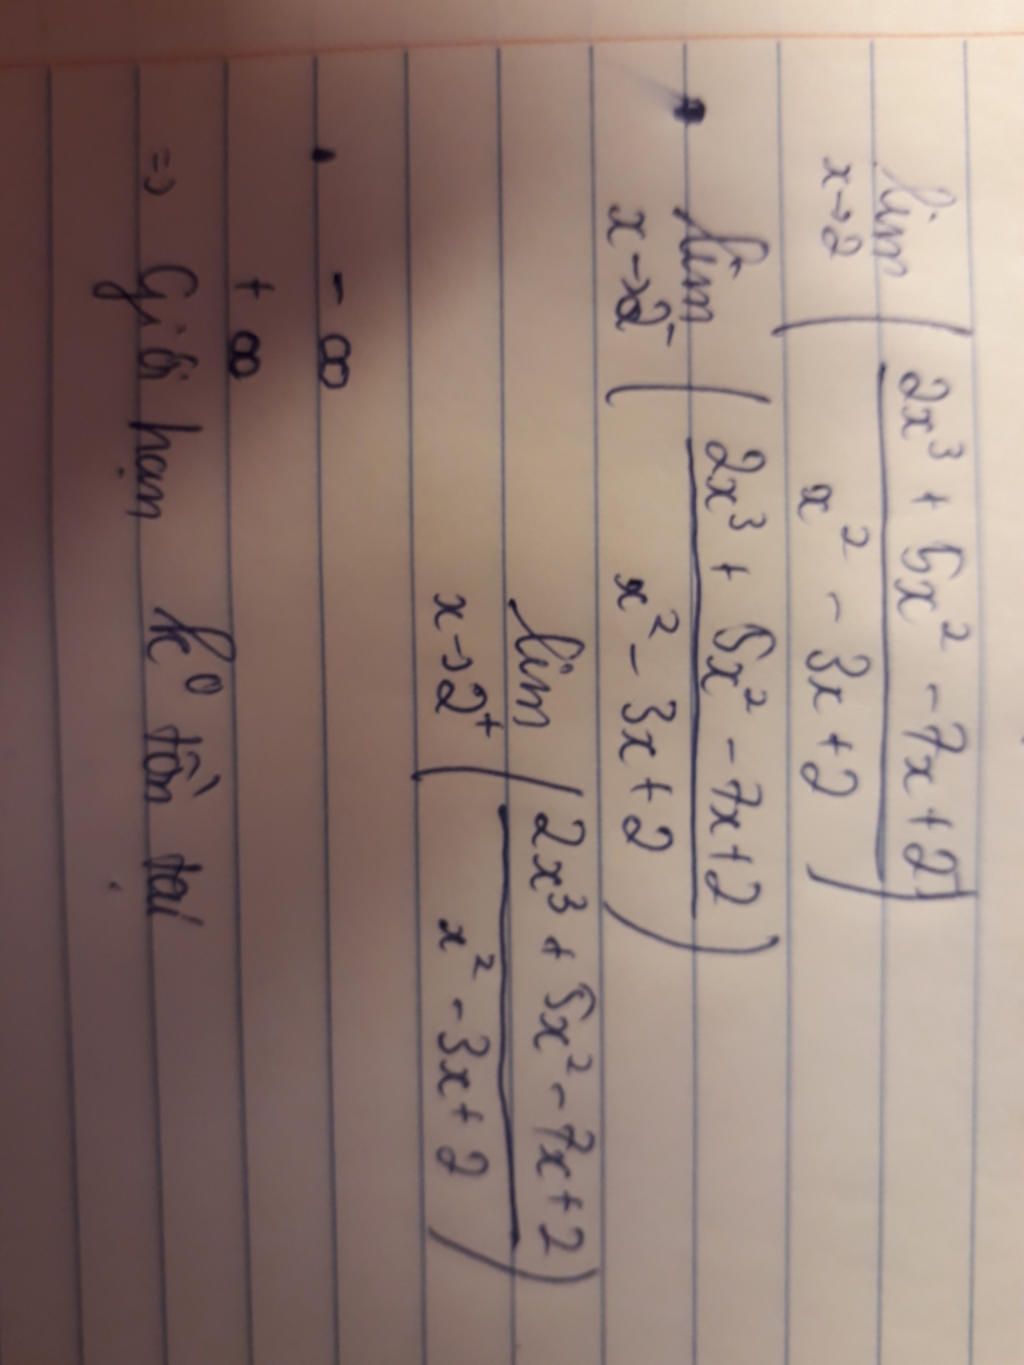 lim x→2 ( (2x³ + 5x² - 7x + 2) / (x² - 3x + 2) )
• lim x→2⁻ ( (2x³ + 5x² - 7x + 2) / (x² - 3x + 2) )
lim x→2⁺ ( (2x³ + 5x² - 7x + 2) / (x² - 3x + 2) )
• - ∞
+ ∞
=> Giới hạn k⁰ tồn tại